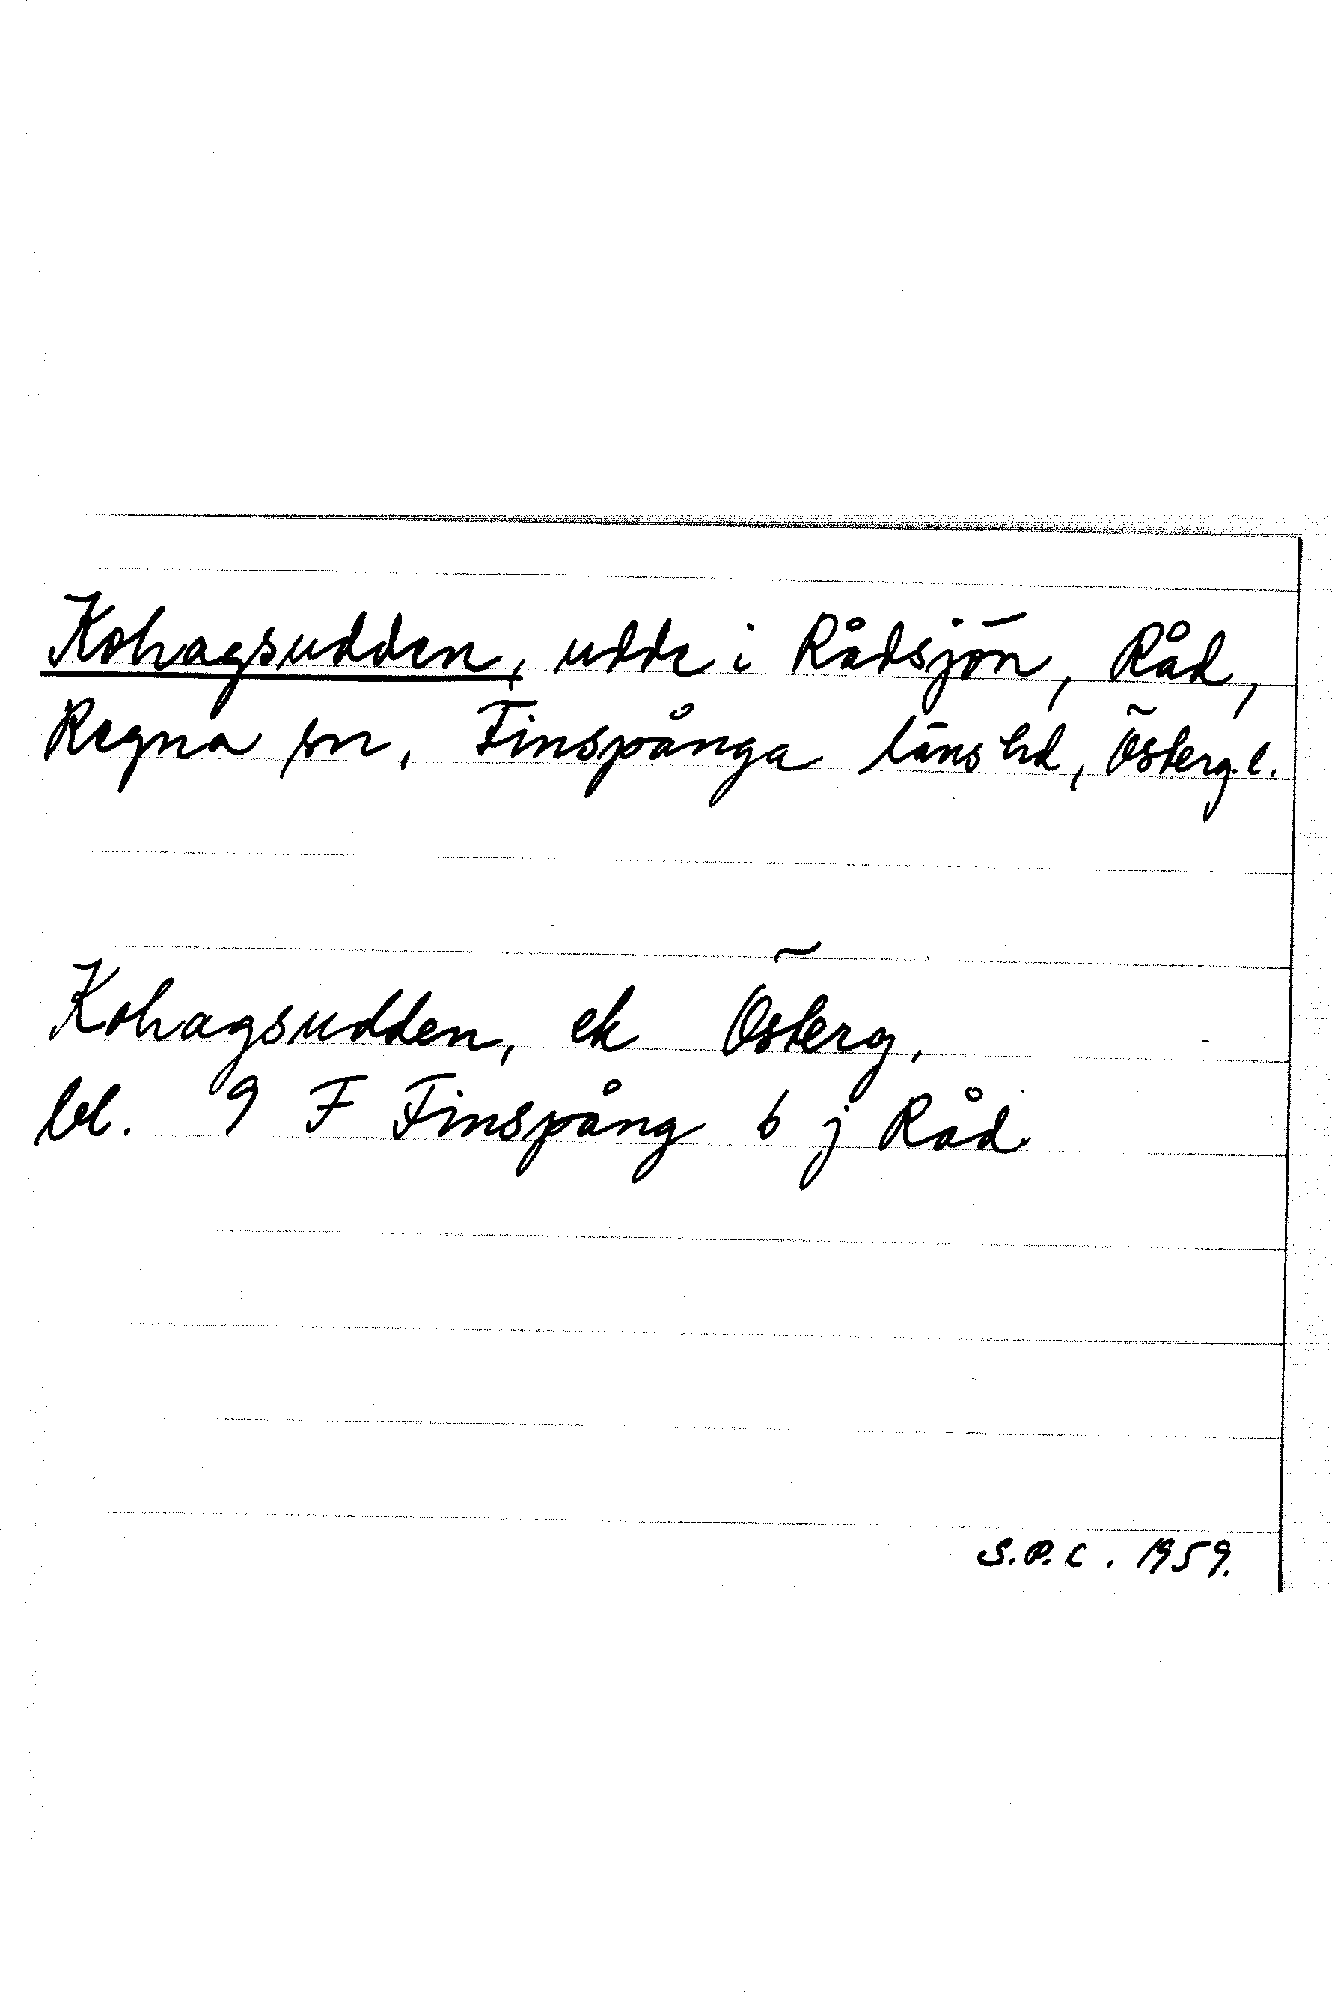 Kohagsudden, udde i Rådsjön, Råd,
Regna sn, Finspånga läns hd, Österg. l.
Kohagsudden, ek Österg.
bl. 9 F Finspång 6 j Råd
S.P.C. 1959.